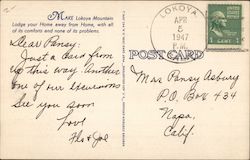 MAKE Lokoya Mountain
Lodge your Home away from Home, with all
of its comforts and none of its problems.
LOKOYA
APR
5
1947
P.M.
1 CENT 1
POST CARD
Dear Pansy:
Just a card from
up this way. Another
one of our excursions.
See you soon
Love
Flo & Joe
Mrs Pansy Asbury
P.O. Box 434
Napa,
Calif.